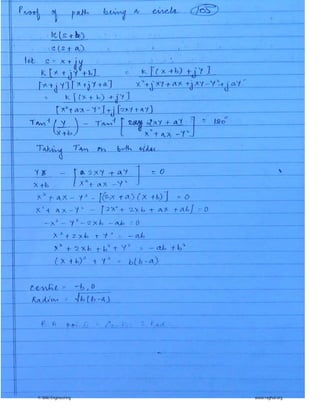 Proof of path being a circle 105
K(s+b)
s(s+a)
let s = x+jy
K[x+jy+b] = K[(x+b)+jy]
[x+jy][x+jy+a] x²+jxy+ax+jxy-y²+jay
= K[(x+b)+jy]
[x²+ax-y²]+j[2xy+ay]
Tan⁻¹(y) - Tan⁻¹[2xy+ay] = 180°
x+b x²+ax-y²
Taking Tan on both sides
y - [2xy+ay] = 0
x+b x²+ax-y²
x²+ax-y² - [(2x+a)(x+b)] = 0
x²+ax-y² - [2x²+2xb+ax+ab] = 0
-x²-y²-2xb-ab = 0
x²+2xb+y² = -ab
x²+2xb+b²+y² = -ab+b²
(x+b)²+y² = b(b-a)
centre = -b,0
Radius = √b(b-a)